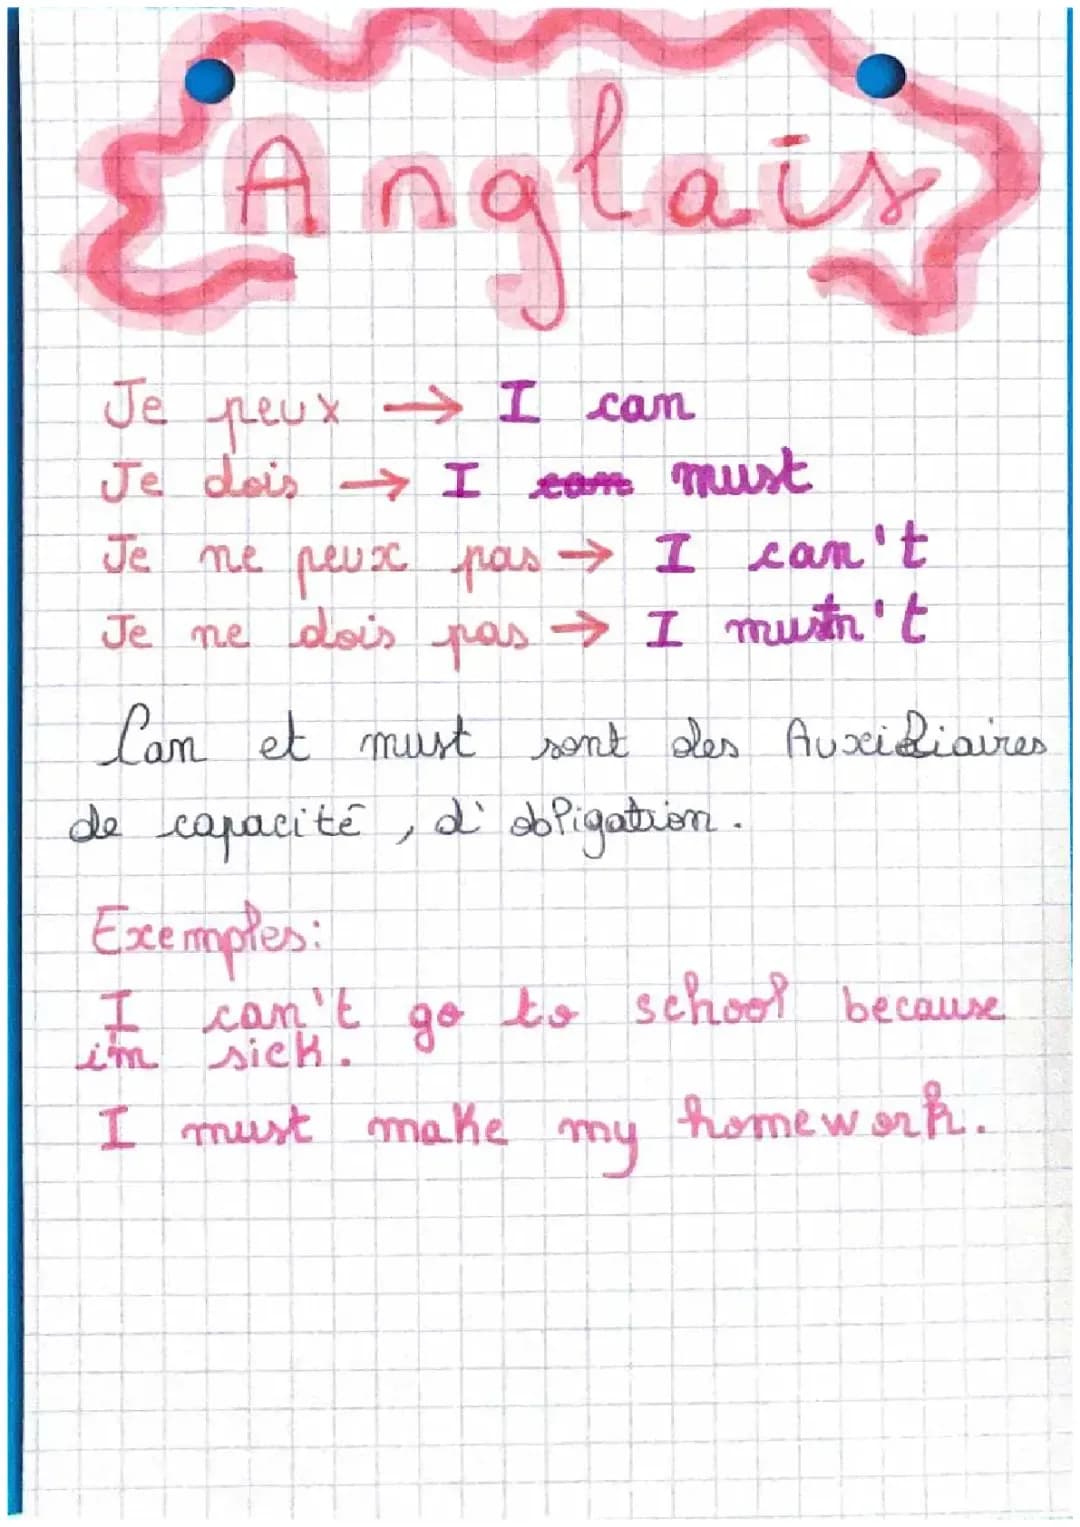 Anglais
Je peux → I can
Je dois → I can must
Je ne peux pas → I can't
Je ne dois pas → I mustn't
Can et must sont des Auxiliaires
de capacité, d'obligation.
Exemples:
I can't go to school because
i'm sick.
I must make my homework.